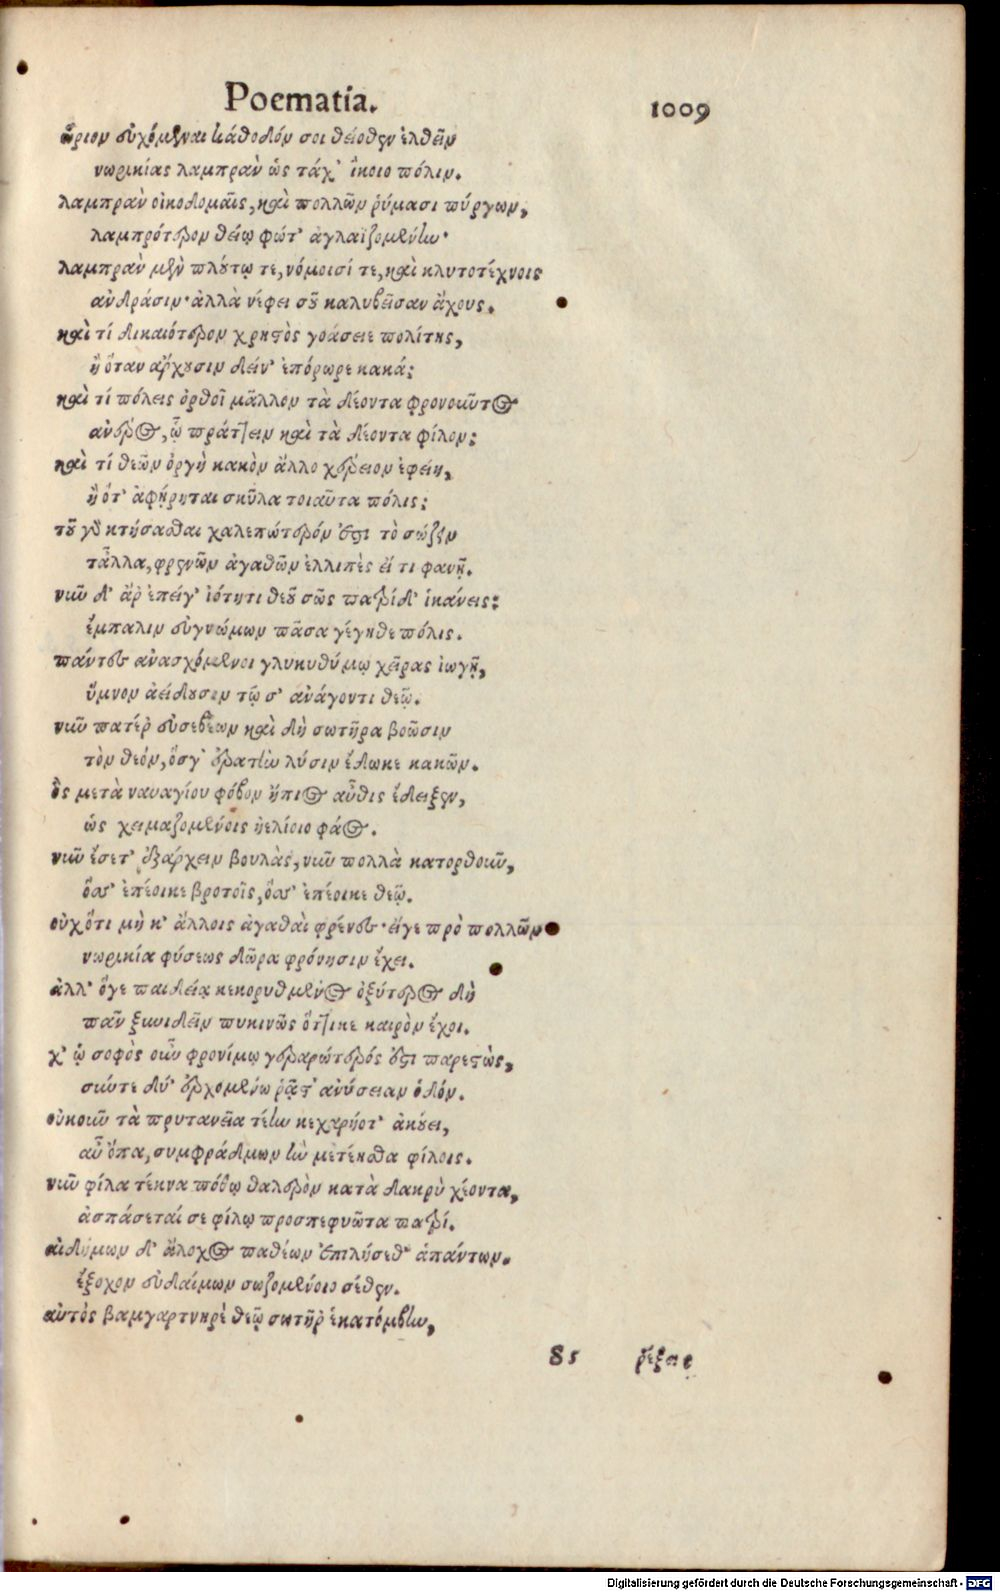 Poematia. 1009
ὥριον εὐχόμεναι κάθοδόν σοι θείοθεν ἐλθεῖν
νωρικίας λαμπρὰν ὡς τάχ' ἵκοιο πόλιν.
λαμπρὰν οἰκοδομαῖς, καὶ πολλῶν ῥύμασι πύργων,
λαμπρότερον θείῳ φώτ' ἀγλαϊζομένην·
λαμπρὰν μὲν πλούτῳ τε, νόμοισί τε, καὶ κλυτοτέχνοις
ἀνδράσιν· ἀλλὰ νέφει σοῦ καλυβεῖσαν ἄχους.
καὶ τί δικαιότερον χρηστὸς γοάσειε πολίτης,
ἢ ὅταν ἄρχουσιν δείν' ἐπόρωρε κακά;
καὶ τί πόλεις ὀρθοῖ μᾶλλον τὰ δέοντα φρονοῦντος
ἀνδρὸς, ᾧ πράττειν καὶ τὰ δέοντα φίλον;
καὶ τί θεῶν ὀργὴ κακὸν ἄλλο χέρειον ἐφείη,
ἢ ὅτ' ἀφῄρηται σκῦλα τοιαῦτα πόλις;
τοῦ γὰρ κτήσασθαι χαλεπώτερόν ἐστι τὸ σώζειν
τἆλλα, φρενῶν ἀγαθῶν ἐλλιπὲς εἴ τι φανῇ.
νῦν δ' ἄρ ἐπείγ' ἰότητι θεοῦ σῶς πατρίδ' ἱκάνεις:
ἔμπαλιν εὐγνώμων πᾶσα γέγηθε πόλις.
πάντες ἀνασχόμενοι γλυκυθύμῳ χεῖρας ἰωγῇ,
ὕμνον ἀείδουσιν τῷ σ' ἀνάγοντι θεῷ.
νῦν πατέρ εὐσεβέων καὶ δὴ σωτῆρα βοῶσιν
τὸν θεόν, ὅσγ' ἐρατὴν λύσιν ἔδωκε κακῶν.
ὃς μετὰ ναυαγίου φόβον ἤπιος αὖθις ἔδειξεν,
ὡς χειμαζομένοις ἠελίοιο φάος.
νῦν ἔσετ' ἐξάρχειν βουλὰς, νῦν πολλὰ κατορθοῦν,
ὅσ' ἐπέοικε βροτοῖς, ὅσ' ἐπέοικε θεῷ.
οὐχ ὅτι μὴ κ' ἄλλοις ἀγαθαὶ φρένες· εἴγε πρὸ πολλῶν
νωρικία φύσεως δῶρα φρόνησιν ἔχει.
ἀλλ' ὅγε παιδείᾳ κεκορυθμένος ὀξύτερος δὴ
πᾶν ξυνιδεῖν πυκινῶς ὅττικε καιρὸν ἔχοι.
χ' ᾧ σοφὸς οὖν φρονίμῳ γεραρώτερός ἐστι παρεστὼς,
σύντε δύ' ἐρχομένω ῥᾷστ' ἀνύσειαν ὁδόν.
οὐκοῦν τὰ πρυτανεῖα τέην κεχαρήοτ' ἀκούει,
αὖ ὄπα, συμφράδμων ἣν μετέκαθα φίλοις.
νῦν φίλα τέκνα πόθῳ θαλερὸν κατὰ δακρὺ χέοντα,
ἀσπάσεταί σε φίλῳ προσπεφυῶτα πατρί.
αἰδήμων δ' ἄλοχος παθέων ἐπιλήσεθ' ἁπάντων.
ἔξοχον εὐδαίμων σωζομένοιο σέθεν.
αὐτὸς βαμγαρτνηρὲ θεῷ σωτῆρ ἑκατόμβην,
85